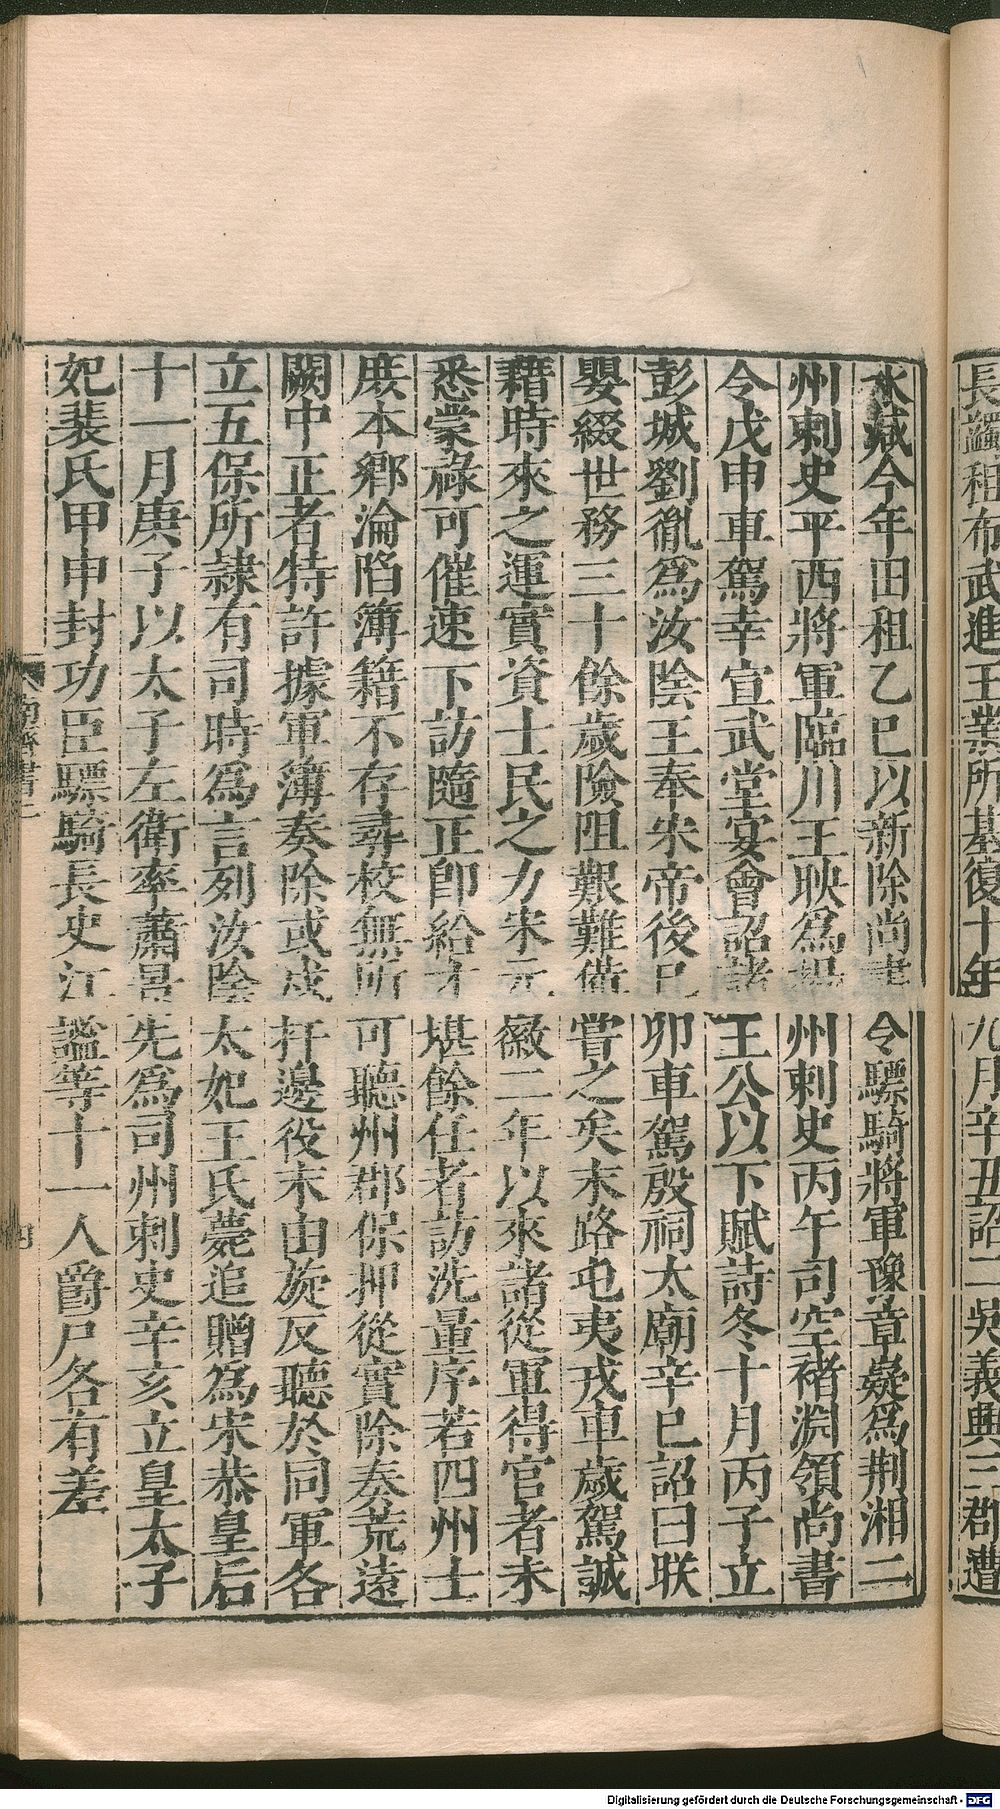 長蠲租布武進王業所基復十年九月辛丑詔二吳義興三郡遭
水減今年田租乙巳以新除尚書令驃騎將軍豫章嶷爲荆湘二
州刺史平西將軍臨川王映爲揚州刺史丙午司空褚淵領尚書
令戊申車駕幸宣武堂宴會詔諸王公以下賦詩冬十月丙子立
彭城劉胤爲汝陰王奉宋帝後己卯車駕殷祠太廟辛巳詔曰朕
嬰綴世務三十餘歲險阻艱難備嘗之矣末路屯夷戎車歲駕誠
藉時來之運實資士民之力宋元徽二年以來諸從軍得官者未
悉蒙祿可催速下訪隨正卽給才堪餘任者訪洗量序若四州士
庶本鄉淪陷簿籍不存尋校無所可聽州郡保押從實除奏荒遠
闕中正者特許據軍簿奏除或戍扞邊役末由旋反聽於同軍各
立五保所隷有司時爲言列汝陰太妃王氏薨追贈爲宋恭皇后
十一月庚子以太子左衛率蕭景先爲司州刺史辛亥立皇太子
妃裴氏甲申封功臣驃騎長史江謐等十一人爵戸各有差
南齊書二
四
Digitalisierung gefördert durch die Deutsche Forschungsgemeinschaft - DFG